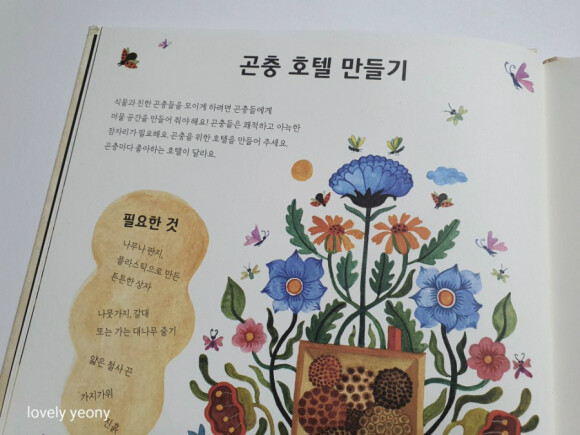 곤충 호텔 만들기
식물과 친한 곤충들을 모이게 하려면 곤충들에게
머물 공간을 만들어 줘야 해요! 곤충들은 쾌적하고 아늑한
잠자리가 필요해요. 곤충을 위한 호텔을 만들어 주세요.
곤충마다 좋아하는 호텔이 달라요.
필요한 것
나무나 판지,
플라스틱으로 만든
튼튼한 상자
나뭇가지, 갈대
또는 가는 대나무 줄기
얇은 철사 끈
가지가위
진흙
lovely yeony